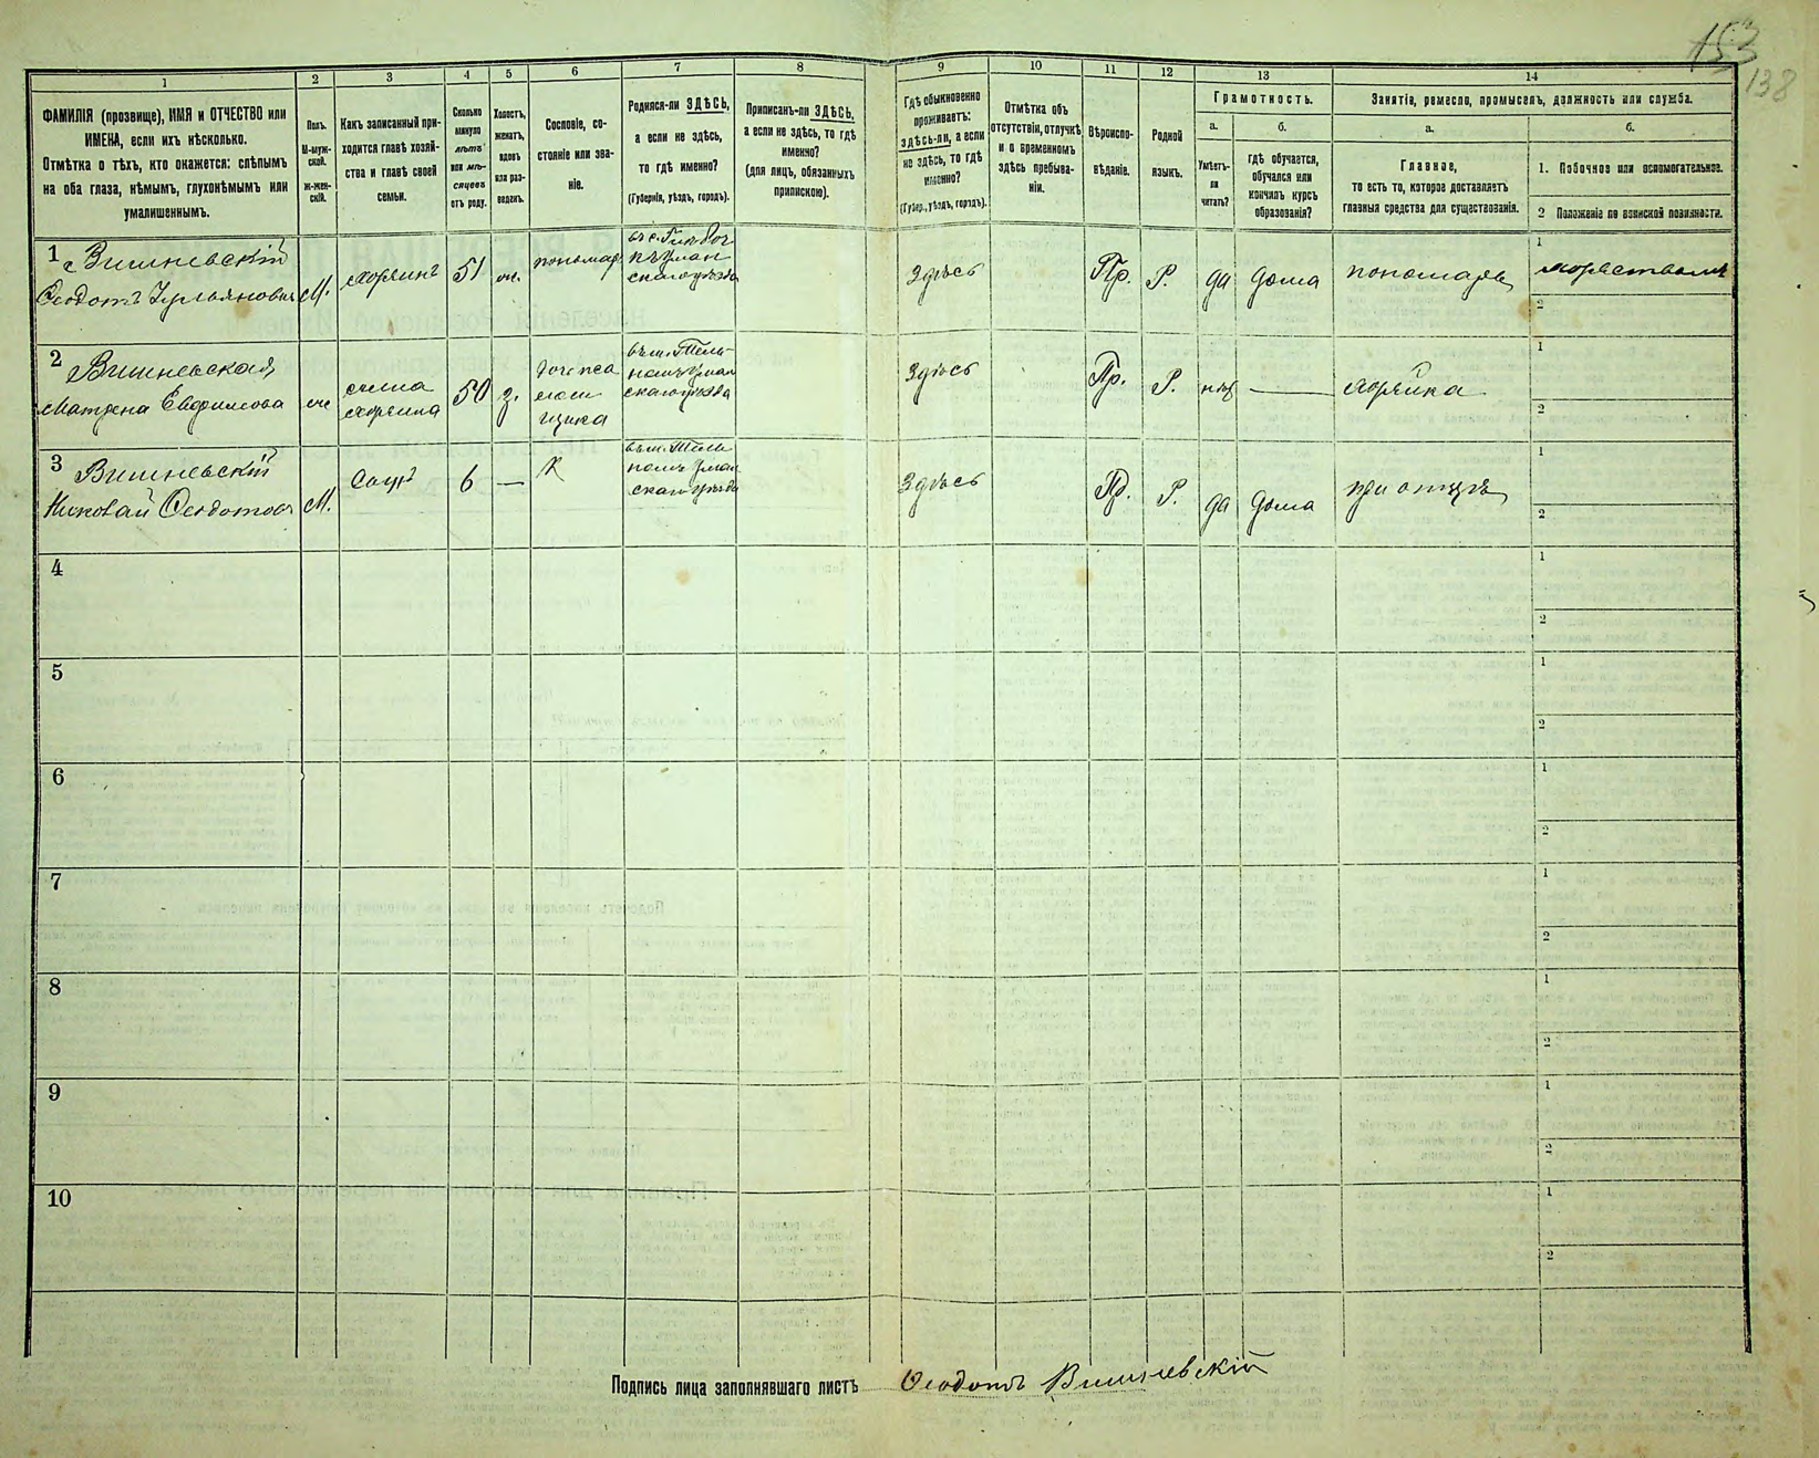 153
138
1
2
3
4
5
6
7
8
9
10
11
12
13
14
ФАМИЛІЯ (прозвище), ИМЯ и ОТЧЕСТВО или
ИМЕНА, если ихъ нѣсколько.
Отмѣтка о тѣхъ, кто окажется: слѣпымъ
на оба глаза, нѣмымъ, глухонѣмымъ или
умалишеннымъ.
Полъ.
М-муж-
ской.
Ж-жен-
скій.
Какъ записанный при-
ходится главѣ хозяй-
ства и главѣ своей
семьи.
Сколько
минуло
лѣтъ
или мѣ-
сяцевъ
отъ роду.
Холостъ,
женатъ,
вдовъ
или раз-
веденъ.
Сословіе, со-
стояніе или зва-
ніе.
Родился-ли ЗДѢСЬ,
а если не здѣсь,
то гдѣ именно?
(Губернія, уѣздъ, городъ).
Приписанъ-ли ЗДѢСЬ,
а если не здѣсь, то гдѣ
именно?
(для лицъ, обязанныхъ
припискою).
Гдѣ обыкновенно
проживаетъ:
здѣсь-ли, а если
не здѣсь, то гдѣ
именно?
(Губер., уѣздъ, городъ).
Отмѣтка объ
отсутствіи, отлучкѣ
и о временномъ
здѣсь пребыва-
ніи.
Вѣроиспо-
вѣданіе.
Родной
языкъ.
Грамотность.
а.
Умѣетъ-
ли
читать?
б.
гдѣ обучается,
обучался или
кончилъ курсъ
образованія?
Занятіе, ремесло, промыселъ, должность или служба.
а.
Главное,
то есть то, которое доставляетъ
главныя средства для существованія.
б.
1. Побочное или вспомогательное.
2 Положеніе по воинской повинности.
1 Вишневскій
Ѳеодотъ
М.
хозяинъ
51
пономарь
Здѣсь
Пр.
Р.
да
дома
пономарь
1
2
2 Вишневская
Матрена Евфимова
жена
хозяина
50
Здѣсь
Пр.
Р.
нѣтъ
—
хозяйка
1
2
3 Вишневскій
Николай
М.
Сынъ
6
—
Здѣсь
Пр.
Р.
да
дома
при отцѣ
1
2
4
1
2
5
1
2
6
1
2
7
1
2
8
1
2
9
1
2
10
1
2
Подпись лица заполнявшаго листъ Ѳеодотъ Вишневскій